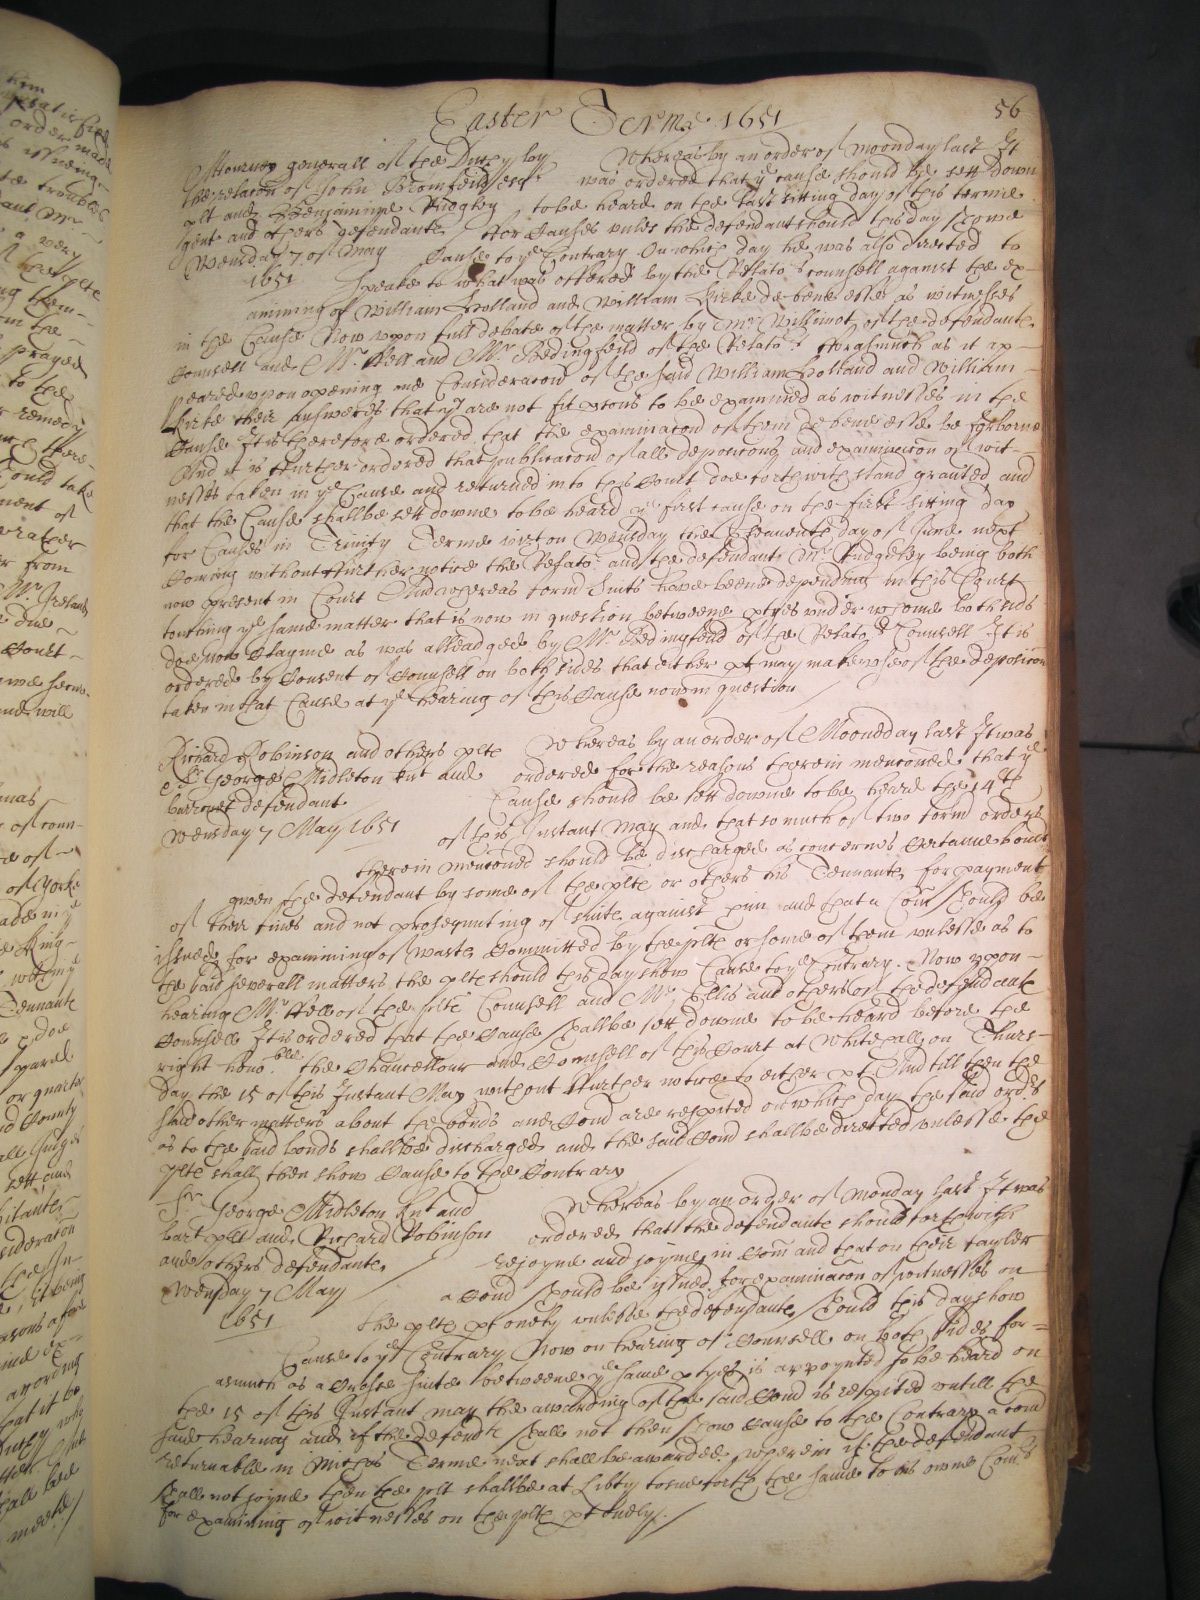 Easter Terme 1651
56
Attorney generall of the Dutchy by
the relacon of John Bromfeild esqr
plt and Benjamine Rudgley
gent and others defendants
Wensday 7 of May
1651
Whereas by an order of moonday last It
was ordered that ye cause should be sett down
to be heard on the last sitting day of this terme
ffor Causes unles the defendant should this day showe
Cause to ye Contrary On which day he was also directed to
speake to what was offered by the Relators counsell against the ex-
amining of William Holland and William Kirke de bene esse as witnesses
in the Cause Now upon full debate of the matter by Mr Willimot of the defendants
Counsell and Mr Fell and Mr Bedingfeild of the Relators fforasmuch as it ap-
peared upon opening and Consideracon of the said William Holland and William
Kirke their answeres that they are not fit psons to be examined as witnesses in the
Cause It is therefore ordered that the examinacon of them de bene esse be forborne
And it is ffurther ordered that publicacon of all deposicons and examinacon of wit-
nesses taken in ye Cause and returned into this Court doe forthwith stand graunted and
that the Cause shallbe sett downe to be heard ye first cause on the first sitting day
for Causes in Trinity Terme vizt on Wensday the day of June next
Coming without ffurther notice the Relator and the defendant Mr Rudgeley being both
now present in Court And whereas form suits have beene depending in this Court
touching ye same matter that is now in question betweene ptyes under whome both sids
doe now Clayme as was alleadged by Mr Bedingfeild of the Relators Counsell It is
ordered by Consent of Counsell on both sides that either pt may make use of the deposicons
taken in that Cause at ye hearing of this Cause now in question
Richard Robinson and others plts
Sr George Midleton knt and
barronet defendant
Wensday 7 May 1651
Whereas by an order of Moonday last It was
ordered for the reasons therein mentioned that ye
Cause should be sett downe to be heard the 14th
of this Instant May and that so much of two form orders
therein mentioned should be discharged as concernes Certaine bonds
given the defendant by some of the plts or others his Tennants for payment
of their fines and not prosequuting of suite against him and that a Com should be
issued for examining of waste Committed by the plts or some of them unlesse as to
the said severall matters the plts should this day show Cause to ye Contrary. Now upon
hearing Mr Fell of the plts Counsell and Mr Ellis and others of the defendants
Counsell It is ordered that the Cause shallbe sett downe to be heard before the
right honoble the Chancellour and Counsell of this Court at Whitehall on Thurs-
day the 15 of this Instant May without ffurther notice to either pt And till then the
said other matters about the bonds and Cond are respited on which day the said orders
as to the said bonds shallbe discharged and the said Cond shallbe directed unlesse the
plts shall then show Cause to the Contrary
Sr George Midleton Knt and
bart plt and Richard Robinson
and others defendants
Wensday 7 May
1651
Whereas by an order of Monday last It was
ordered that the defendants should forthwith
rejoyne and joyne in Com and that on their fayler
a Cond should be issued for examinacon of witnesses on
the plts pt onely unlesse the defendants should this day show
Cause to ye Contrary Now on hearing of Counsell on both sides for-
asmuch as a Crosse suite betweene ye same ptyes is appoynted to be heard on
the 15 of this Instant may the awarding of the said Cond is respited untill the
said hearing and if the defendts shall not then show Cause to the Contrary a Cond
returnable in Michs Terme next shall be awarded wherein if the defendant
shall not joyne then the plt shallbe at Libty to sue forth the same to his owne Coms
for examining of witnesses on the plts pt onely